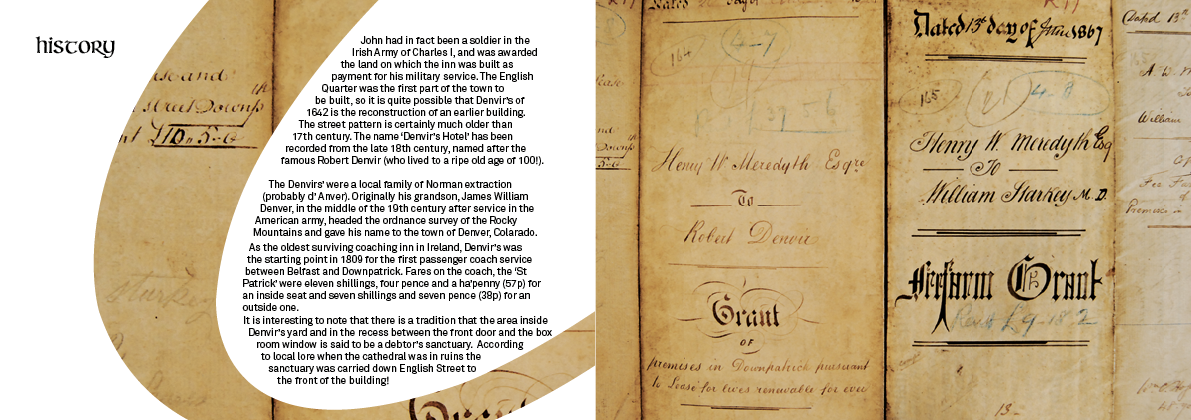 history
John had in fact been a soldier in the
Irish Army of Charles I, and was awarded
the land on which the inn was built as
payment for his military service. The English
Quarter was the first part of the town to
be built, so it is quite possible that Denvir's of
1642 is the reconstruction of an earlier building.
The street pattern is certainly much older than
17th century. The name 'Denvir's Hotel' has been
recorded from the late 18th century, named after the
famous Robert Denvir (who lived to a ripe old age of 100!).
The Denvirs' were a local family of Norman extraction
(probably d' Anver). Originally his grandson, James William
Denver, in the middle of the 19th century after service in the
American army, headed the ordnance survey of the Rocky
Mountains and gave his name to the town of Denver, Colarado.
As the oldest surviving coaching inn in Ireland, Denvir's was
the starting point in 1809 for the first passenger coach service
between Belfast and Downpatrick. Fares on the coach, the 'St
Patrick' were eleven shillings, four pence and a ha'penny (57p) for
an inside seat and seven shillings and seven pence (38p) for an
outside one.
It is interesting to note that there is a tradition that the area inside
Denvir's yard and in the recess between the front door and the box
room window is said to be a debtor's sanctuary. According
to local lore when the cathedral was in ruins the
sanctuary was carried down English Street to
the front of the building!
Street Downp
£10,,5-0
164
4-7
Henry W Meredyth Esqre
To
Robert Denvir
Grant
OF
premises in Downpatrick pursuant
to Lease for lives renewable for ever
Dated 13th day of June 1867
165
4-8
Henry W Meredyth Esq
To
William Starkey M.D.
Feefarm Grant
13-
Dated 13th
A W M
William
Fee Fa
Premises in